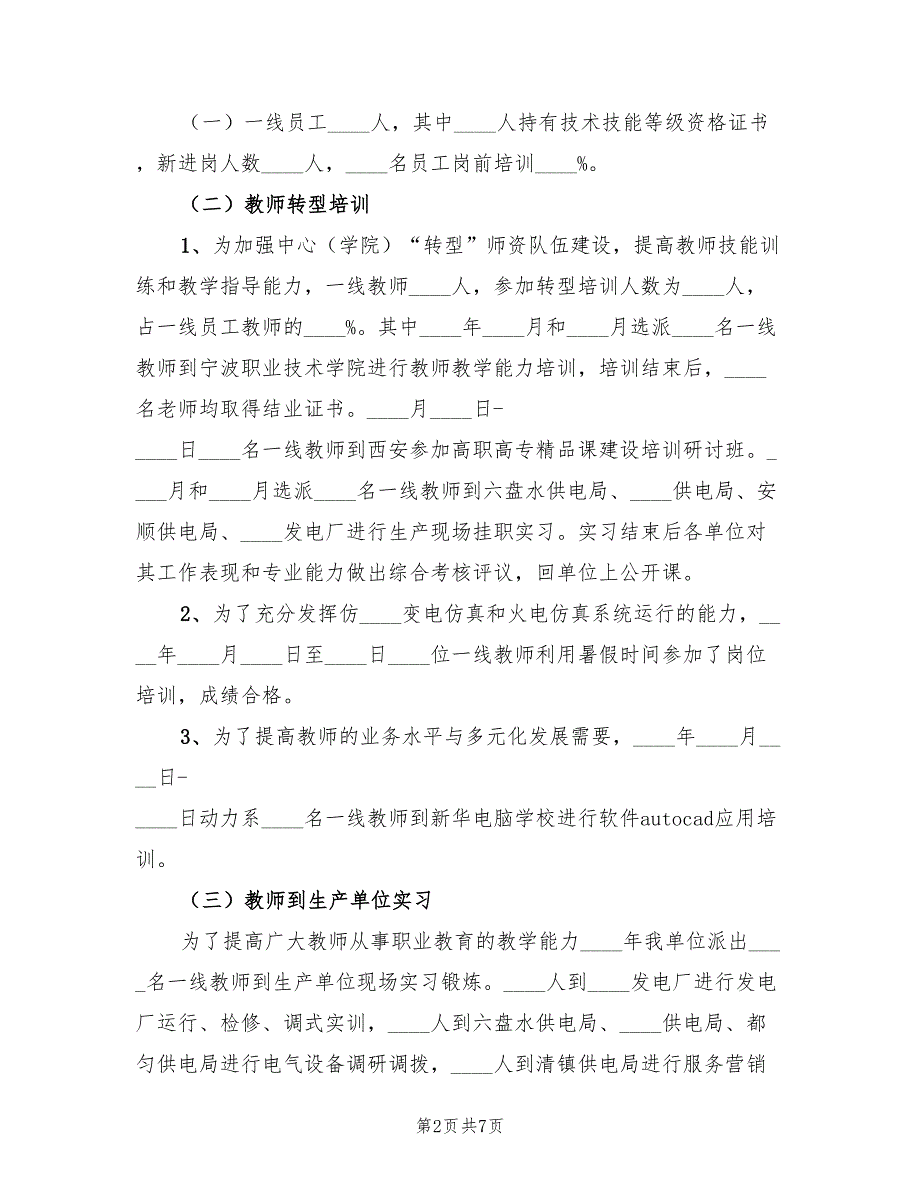 （一）一线员工____人，其中____人持有技术技能等级资格证书
，新进岗人数____人，____名员工岗前培训____%。
（二）教师转型培训
1、为加强中心（学院）“转型”师资队伍建设，提高教师技能训
练和教学指导能力，一线教师____人，参加转型培训人数为____人，
占一线员工教师的____%。其中____年____月和____月选派____名一线
教师到宁波职业技术学院进行教师教学能力培训，培训结束后，____
名老师均取得结业证书。____月____日-
____日____名一线教师到西安参加高职高专精品课建设培训研讨班。_
___月和____月选派____名一线教师到六盘水供电局、____供电局、安
顺供电局、____发电厂进行生产现场挂职实习。实习结束后各单位对
其工作表现和专业能力做出综合考核评议，回单位上公开课。
2、为了充分发挥仿____变电仿真和火电仿真系统运行的能力，__
__年____月____日至____日____位一线教师利用暑假时间参加了岗位
培训，成绩合格。
3、为了提高教师的业务水平与多元化发展需要，____年____月__
__日-
____日动力系____名一线教师到新华电脑学校进行软件autocad应用培
训。
（三）教师到生产单位实习
为了提高广大教师从事职业教育的教学能力____年我单位派出___
_名一线教师到生产单位现场实习锻炼。____人到____发电厂进行发电
厂运行、检修、调式实训，____人到六盘水供电局、____供电局、都
匀供电局进行电气设备调研调拨，____人到清镇供电局进行服务营销
第2页共7页